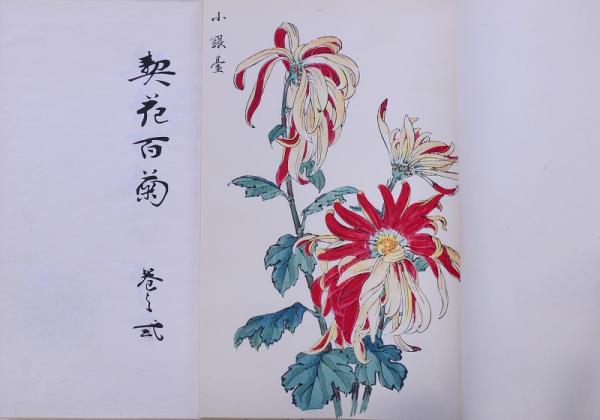 契花百菊
巻之弐
小銀臺